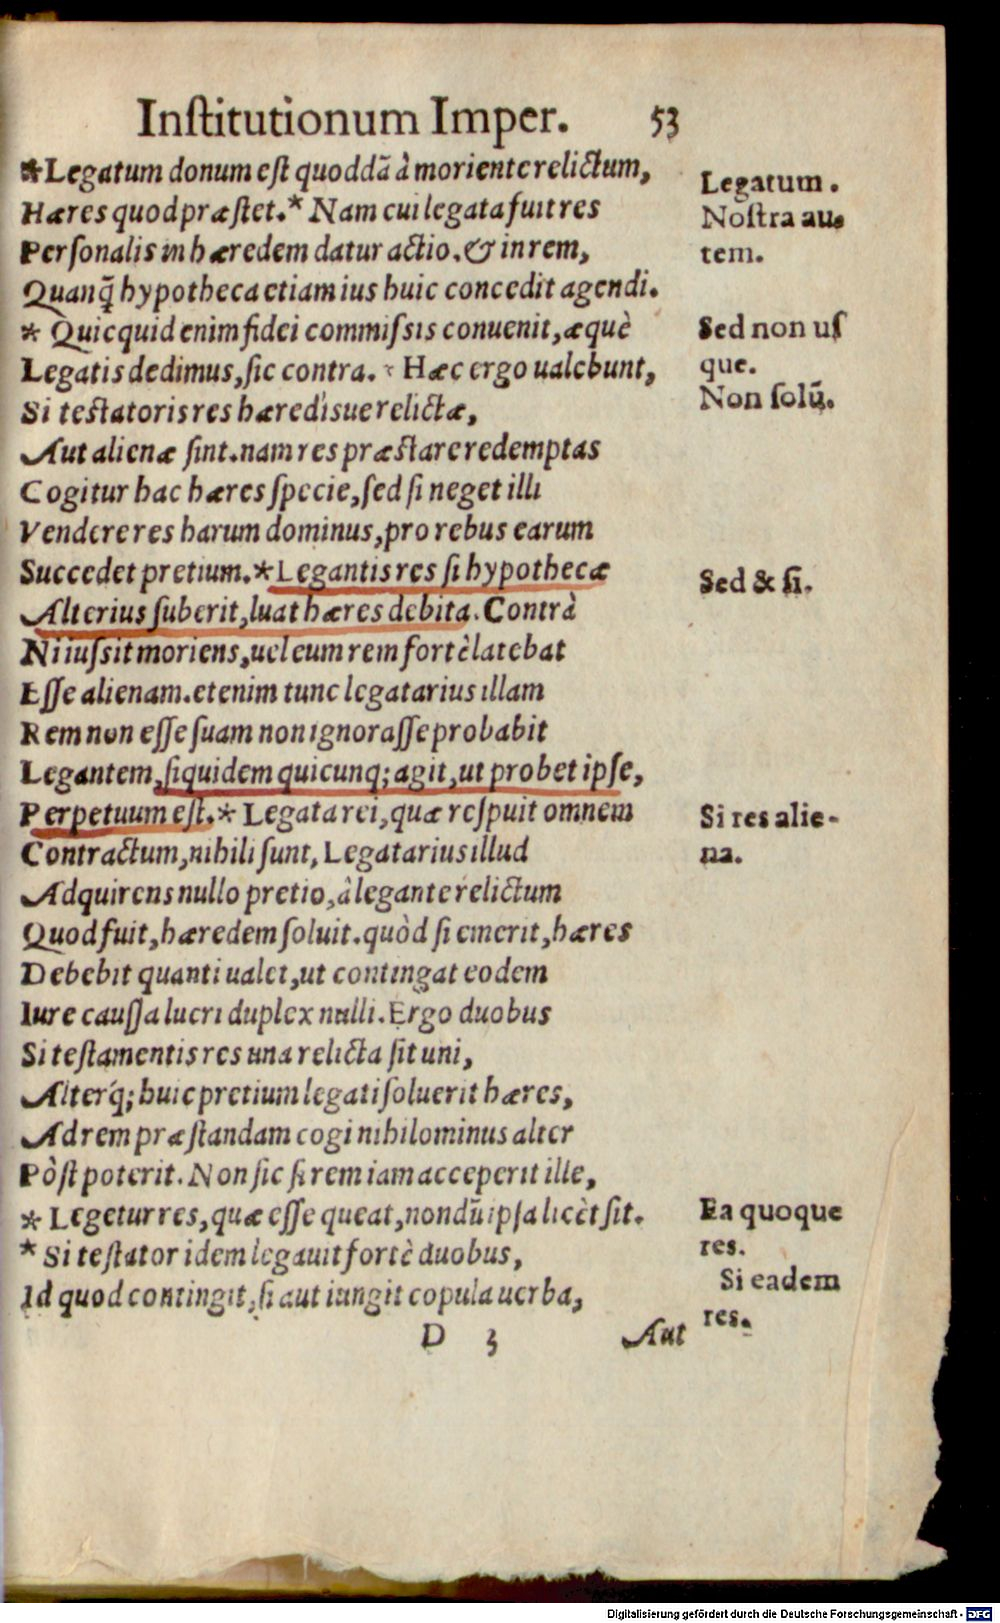 Inſtitutionum Imper. 53
*Legatum donum eſt quoddã à moriente relictum,
Legatum.
Hæres quod præſtet.* Nam cui legata fuit res
Noſtra au-
Perſonalis in hæredem datur actio, & in rem,
tem.
Quanq̃ hypotheca etiam ius huic concedit agendi.
* Quicquid enim fidei commiſsis conuenit, æquè
Sed non uſ
Legatis dedimus, ſic contra. * Hæc ergo ualebunt,
que.
Non ſolũ.
Si teſtatoris res hæredisue relictæ,
Aut alienæ ſint. nam res præſtare redemptas
Cogitur hac hæres ſpecie, ſed ſi neget illi
Vendere res harum dominus, pro rebus earum
Succedet pretium.*Legantis res ſi hypothecæ
Sed & ſi.
Alterius ſuberit, luat hæres debita. Contrà
Ni iuſsit moriens, uel eum rem fortè latebat
Eſſe alienam. etenim tunc legatarius illam
Rem non eſſe ſuam non ignoraſſe probabit
Legantem, ſiquidem quicunq; agit, ut probet ipſe,
Perpetuum eſt.* Legata rei, quæ reſpuit omnem
Si res alie-
Contractum, nihili ſunt, Legatarius illud
na.
Adquirens nullo pretio, à legante relictum
Quod fuit, hæredem ſoluit. quòd ſi emerit, hæres
Debebit quanti ualet, ut contingat eodem
Iure cauſſa lucri duplex nulli. Ergo duobus
Si teſtamentis res una relicta ſit uni,
Alterq́; huic pretium legati ſoluerit hæres,
Ad rem præſtandam cogi nihilominus alter
Pòſt poterit. Non ſic ſi rem iam acceperit ille,
* Legetur res, quæ eſſe queat, nondũ ipſa licèt ſit.
Ea quoque
res.
* Si teſtator idem legauit fortè duobus,
Si eadem
Id quod contingit, ſi aut iungit copula uerba,
res.
D 3 Aut
Digitalisierung gefördert durch die Deutsche Forschungsgemeinschaft - DFG